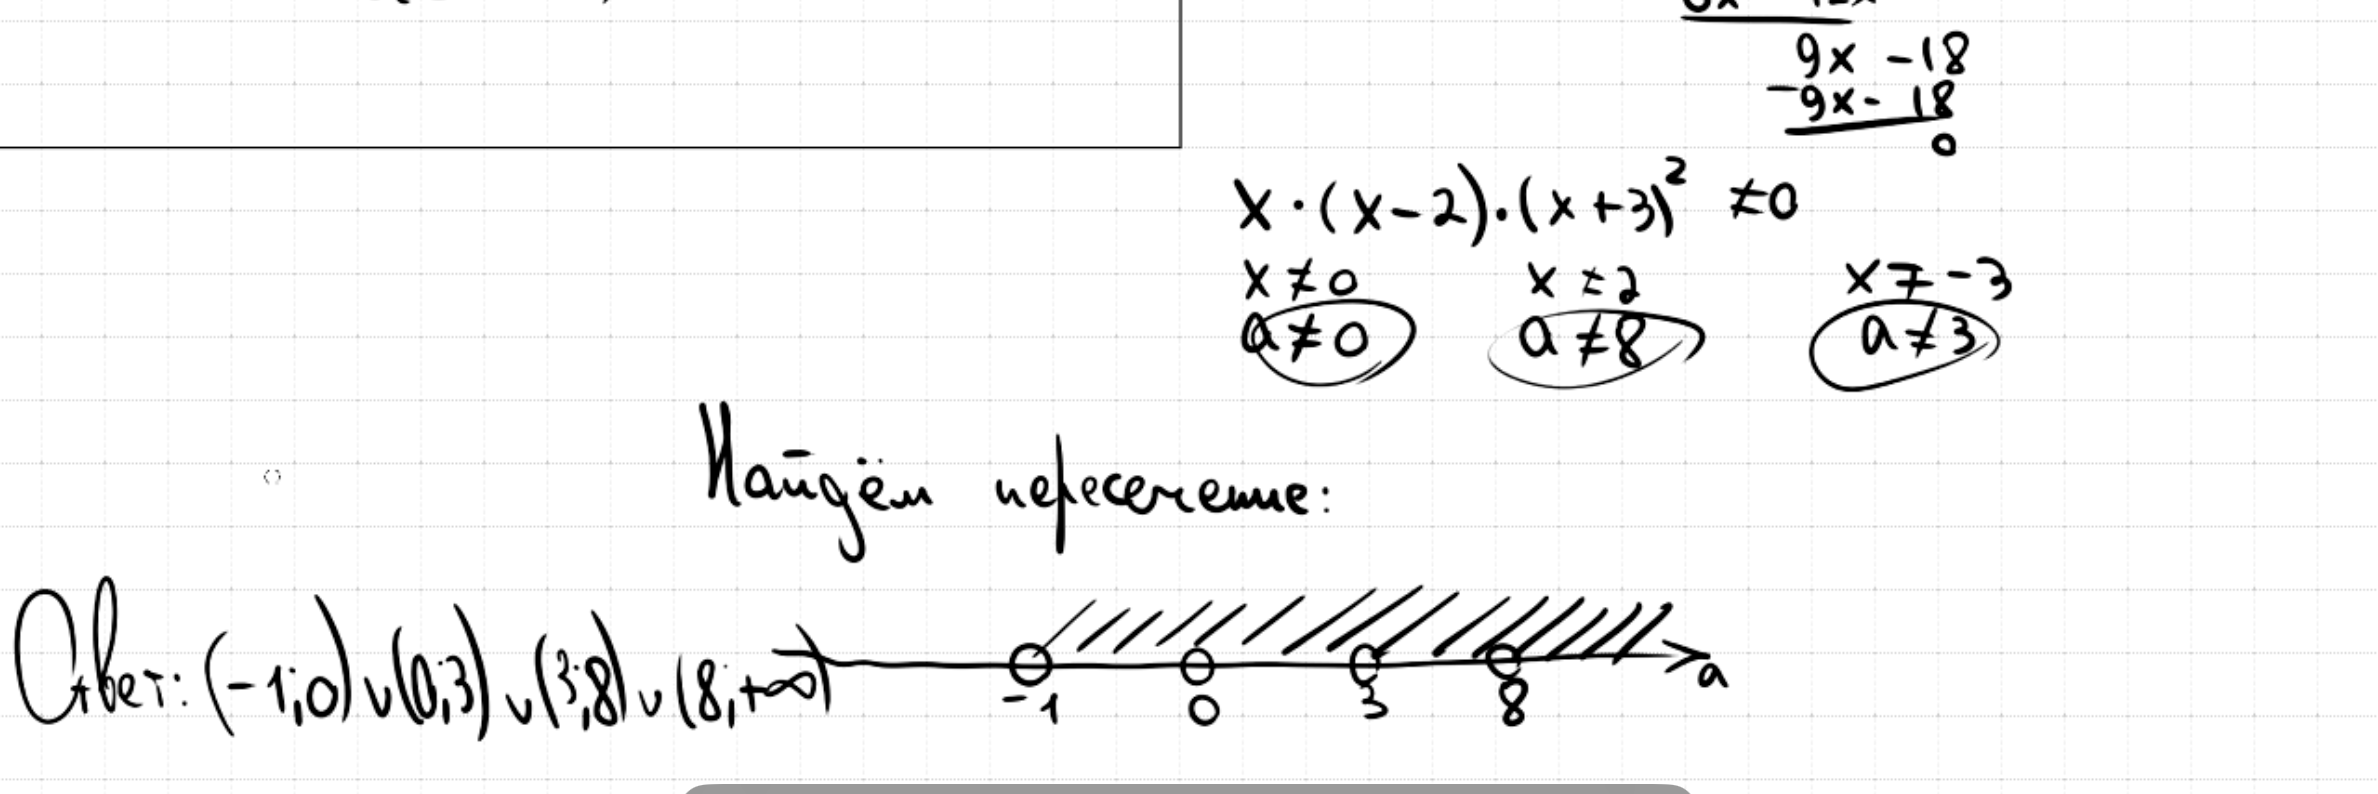 9x - 18
-9x - 18
0
x · (x - 2) · (x + 3)² ≠ 0
x ≠ 0 x ≠ 2 x ≠ -3
a ≠ 0 a ≠ 8 a ≠ 3
Найдём пересечение:
Ответ: (-1; 0) ∪ (0; 3) ∪ (3; 8) ∪ (8; +∞)
-1 0 3 8 a